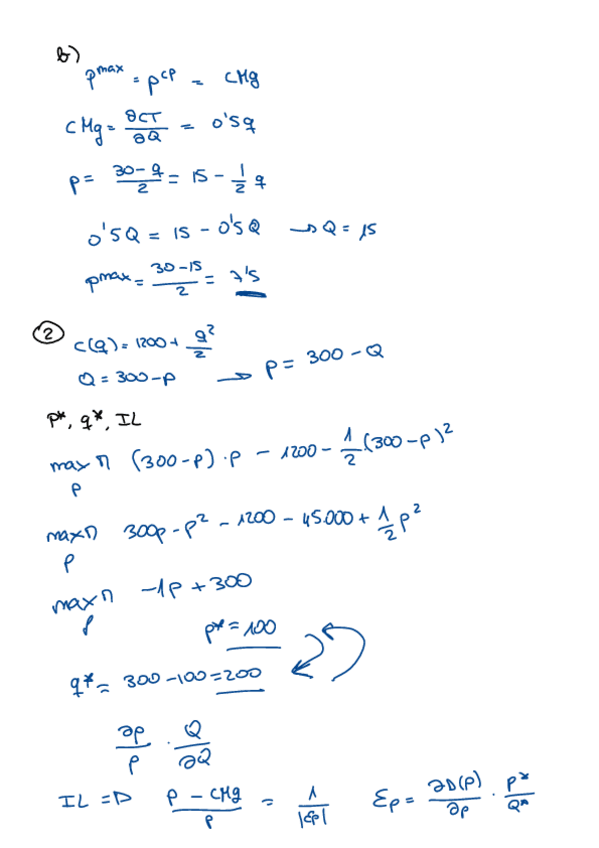 b)
p^max = p^cp = CMg
CMg = ∂CT/∂Q = 0'5q
p = (30 - q)/2 = 15 - 1/2 q
0'5Q = 15 - 0'5Q → Q = 15
p^max = (30 - 15)/2 = 7'5
② C(q) = 1200 + q²/2
Q = 300 - p → p = 300 - Q
p*, q*, IL
max π p (300 - p) · p - 1200 - 1/2 (300 - p)²
max π p 300p - p² - 1200 - 45.000 + 1/2 p²
max π p -1p + 300
p* = 100
q* = 300 - 100 = 200
∂p/p · Q/∂Q
IL ⇒ (p - CMg)/p = 1/|εp| εp = ∂D(p)/∂p · p*/Q*